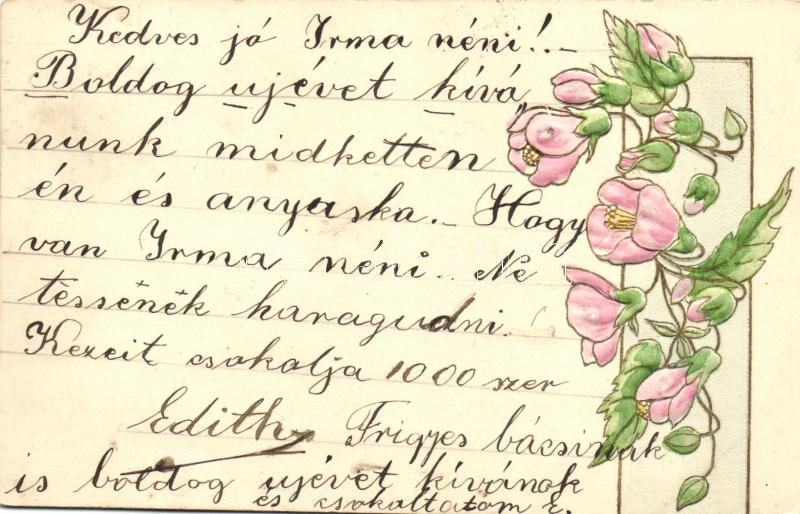 Kedves jó Irma néni!.-
Boldog ujévet kívá„
nunk midketten
én és anyaska.- Hogy
van Irma néni. Ne
téssénék haragudni.
Kezeit csokolja 1000 szer
Edith Frigyes bácsinak
is boldog ujévet kívánok
és csokoltatom